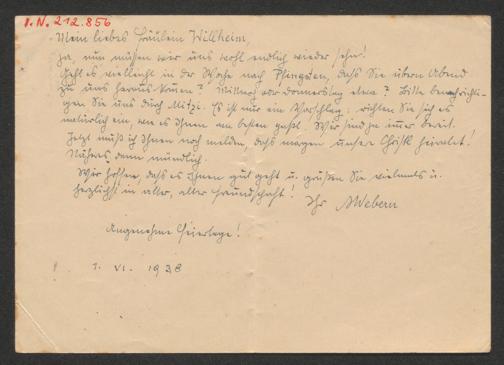 I.N. 212.856
Mein liebes Fräulein Willheim,
ja, nun müssen wir uns wohl endlich wieder sehn!
Geht es vielleicht in der Woche nach Pfingsten, daß Sie übern Abend
zu uns heraus können? Mittwoch oder Donnerstag etwa? Bitte benachrichti-
gen Sie uns durch Mitzi. Es ist nur ein Vorschlag; richten Sie sich es
natürlich ein, wie es Ihnen am besten paßt. Wir sind ja immer bereit.
Jetzt muß ich Ihnen noch melden, daß morgen unsere Christl heiratet!
Näheres dann mündlich.
Wir hoffen, daß es Ihnen gut geht u. grüßen Sie vielmals u.
herzlichst in alter, alter Freundschaft!
Ihr AWebern
Angenehme Feiertage!
1. VI. 1938